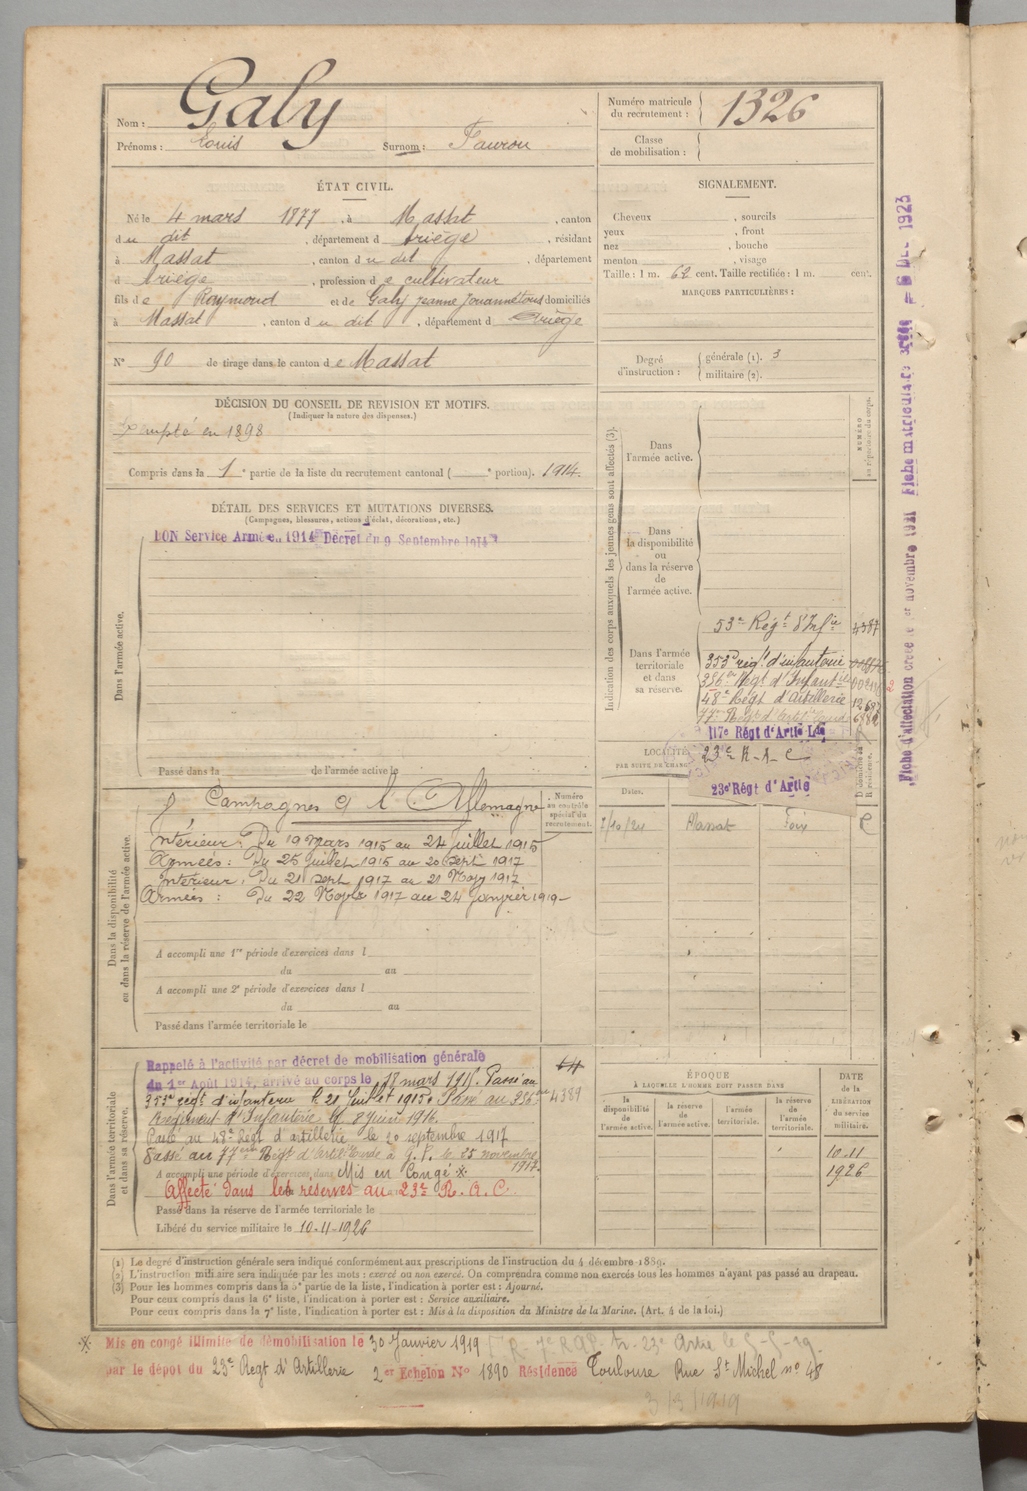 Nom : Galy
Prénoms : Louis Surnom : Faurou
Numéro matricule du recrutement : 1326
Classe de mobilisation :
ÉTAT CIVIL.
Né le 4 mars 1877, à Massat, canton
du dit, département d Ariège, résidant
à Massat, canton du dit, département
d Ariège, profession de cultivateur
fils de Raymond et de Galy jeanne Jouannétous domiciliés
à Massat, canton du dit, département d Ariège
N° 90 de tirage dans le canton de Massat
SIGNALEMENT.
Cheveux , sourcils
yeux , front
nez , bouche
menton , visage
Taille : 1 m. 62 cent. Taille rectifiée : 1 m. cent.
MARQUES PARTICULIÈRES :
Degré d'instruction : générale (1). 3
militaire (2).
DÉCISION DU CONSEIL DE REVISION ET MOTIFS.
(Indiquer la nature des dispenses.)
en 1898
Compris dans la 1e partie de la liste du recrutement cantonal ( e portion). 1914.
DÉTAIL DES SERVICES ET MUTATIONS DIVERSES.
(Campagnes, blessures, actions d'éclat, décorations, etc.)
BON Service Armée. 1914 Décret du 9 Septembre 1914
Dans l'armée active.
Passé dans la de l'armée active le
Indication des corps auxquels les jeunes gens sont affectés (3).
NUMÉRO au répertoire du corps.
Dans l'armée active.
Dans la disponibilité ou dans la réserve de l'armée active.
Dans l'armée territoriale et dans sa réserve.
53e Régt d'Infie
353e régt d'infanterie
356e Régt d'Infantie
48e Régt d'Artillerie
77e Régt d'Artie
117e Régt d'Artie Lde
23e R.A.C
23e Régt d'Artie
LOCALITÉS
PAR SUITE DE CHANG
Dates.
Massat Foix
Fiche d'affectation créée le 1er novembre 1921 Fiche matriculaire 1923
Dans la disponibilité ou dans la réserve de l'armée active.
Numéro au contrôle spécial du recrutement.
Campagnes C l'Allemagne
Intérieur : Du 19 Mars 1915 au 24 juillet 1915
Armées : Du 25 Juillet 1915 au 20 Sept 1917
Intérieur : Du 21 sept 1917 au 21 Nov 1917
Armées : Du 22 Nov 1917 au 24 janvier 1919
A accompli une 1re période d'exercices dans l
du au
A accompli une 2e période d'exercices dans l
du au
Passé dans l'armée territoriale le
Dans l'armée territoriale et dans sa réserve.
Rappelé à l'activité par décret de mobilisation générale
du 1er Août 1914, arrivé au corps le 18 mars 1915. Passé au
353e régt d'infanterie le 21 Juillet 1915. Passé au 356e 4389
Régiment d'Infanterie le 8 Juin 1916.
Passé au 48e Régt d'artillerie le 20 septembre 1917
Passé au 77e Régt d'Artillerie le 25 novembre
1917.
A accompli une période d'exercices dans Mis en Congé *.
Affecté dans les réserves au 23e R.A.C.
Passé dans la réserve de l'armée territoriale le
Libéré du service militaire le 10-11-1926
ÉPOQUE
À LAQUELLE L'HOMME DOIT PASSER DANS
la disponibilité de l'armée active.
la réserve de l'armée active.
l'armée territoriale.
la réserve de l'armée territoriale.
DATE de la LIBÉRATION du service militaire.
10-11
1926
(1) Le degré d'instruction générale sera indiqué conformément aux prescriptions de l'instruction du 4 décembre 1889.
(2) L'instruction militaire sera indiquée par les mots : exercé ou non exercé. On comprendra comme non exercés tous les hommes n'ayant pas passé au drapeau.
(3) Pour les hommes compris dans la 5e partie de la liste, l'indication à porter est : Ajourné.
Pour ceux compris dans la 6e liste, l'indication à porter est : Service auxiliaire.
Pour ceux compris dans la 7e liste, l'indication à porter est : Mis à la disposition du Ministre de la Marine. (Art. 4 de la loi.)
* Mis en congé illimité de démobilisation le 30 Janvier 1919
par le dépôt du 23e Régt d'Artillerie 2er Echelon N° 1890 Résidence Toulouse Rue St Michel n° 48
3/3/1919